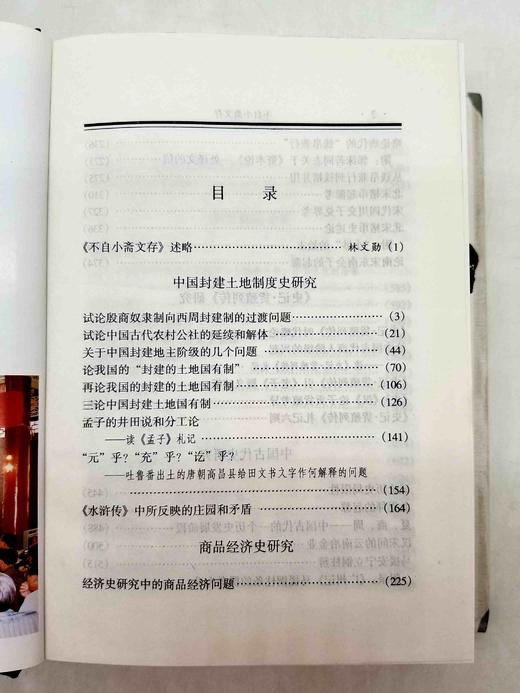 目 录
《不自小斋文存》述略……………………………林文勋（1）
中国封建土地制度史研究
试论殷商奴隶制向西周封建制的过渡问题…………………（3）
试论中国古代农村公社的延续和解体…………………（21）
关于中国封建地主阶级的几个问题…………………（44）
论我国的“封建的土地国有制”…………………（70）
再论我国的封建的土地国有制…………………（106）
三论中国封建土地国有制…………………（126）
孟子的井田说和分工论
——读《孟子》札记…………………（141）
“元”乎？“充”乎？“讫”乎？
——吐鲁番出土的唐朝高昌县给田文书文字作何解释的问题
…………………（154）
《水浒传》中所反映的庄园和矛盾…………………（164）
商品经济史研究
经济史研究中的商品经济问题…………………（225）